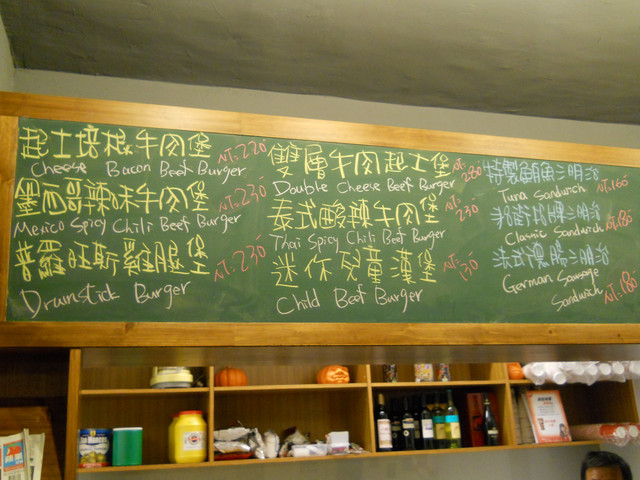 起士培根牛肉堡 NT:220
Cheese Bacon Beef Burger
墨西哥辣味牛肉堡 NT:230
Mexico Spicy Chili Beef Burger
普羅旺斯雞腿堡 NT:230
Drumstick Burger
雙層牛肉起士堡 NT:280
Double Cheese Beef Burger
泰式酸辣牛肉堡 NT:230
Thai Spicy Chili Beef Burger
迷你兒童漢堡 NT:130
Child Beef Burger
特製鮪魚三明治 NT:160
Tuna Sandwich
三明治
Classic Sandwich
法式德腸三明治
German Sausage
Sandwich NT:180